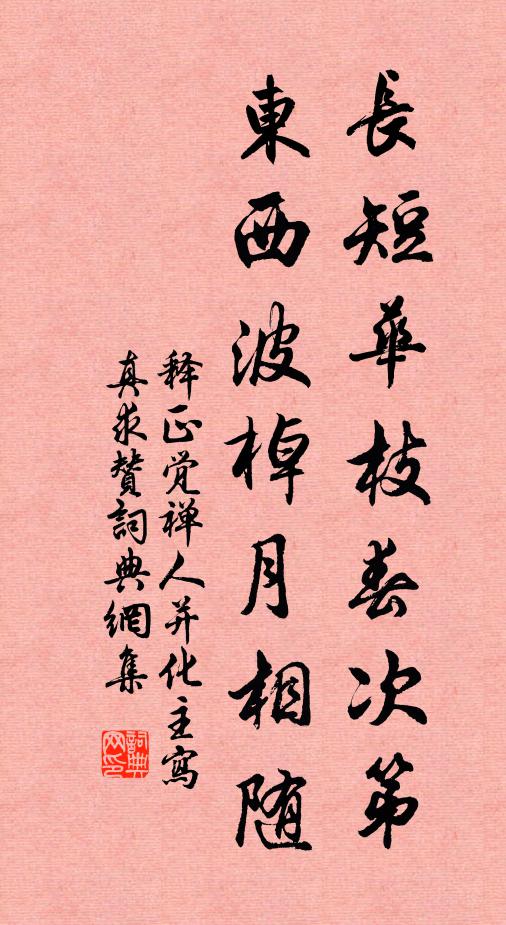 長短華枝春次第
東西波棹月相随
释正觉禅人并化主寫
真求赞詞典網集
詞典網印